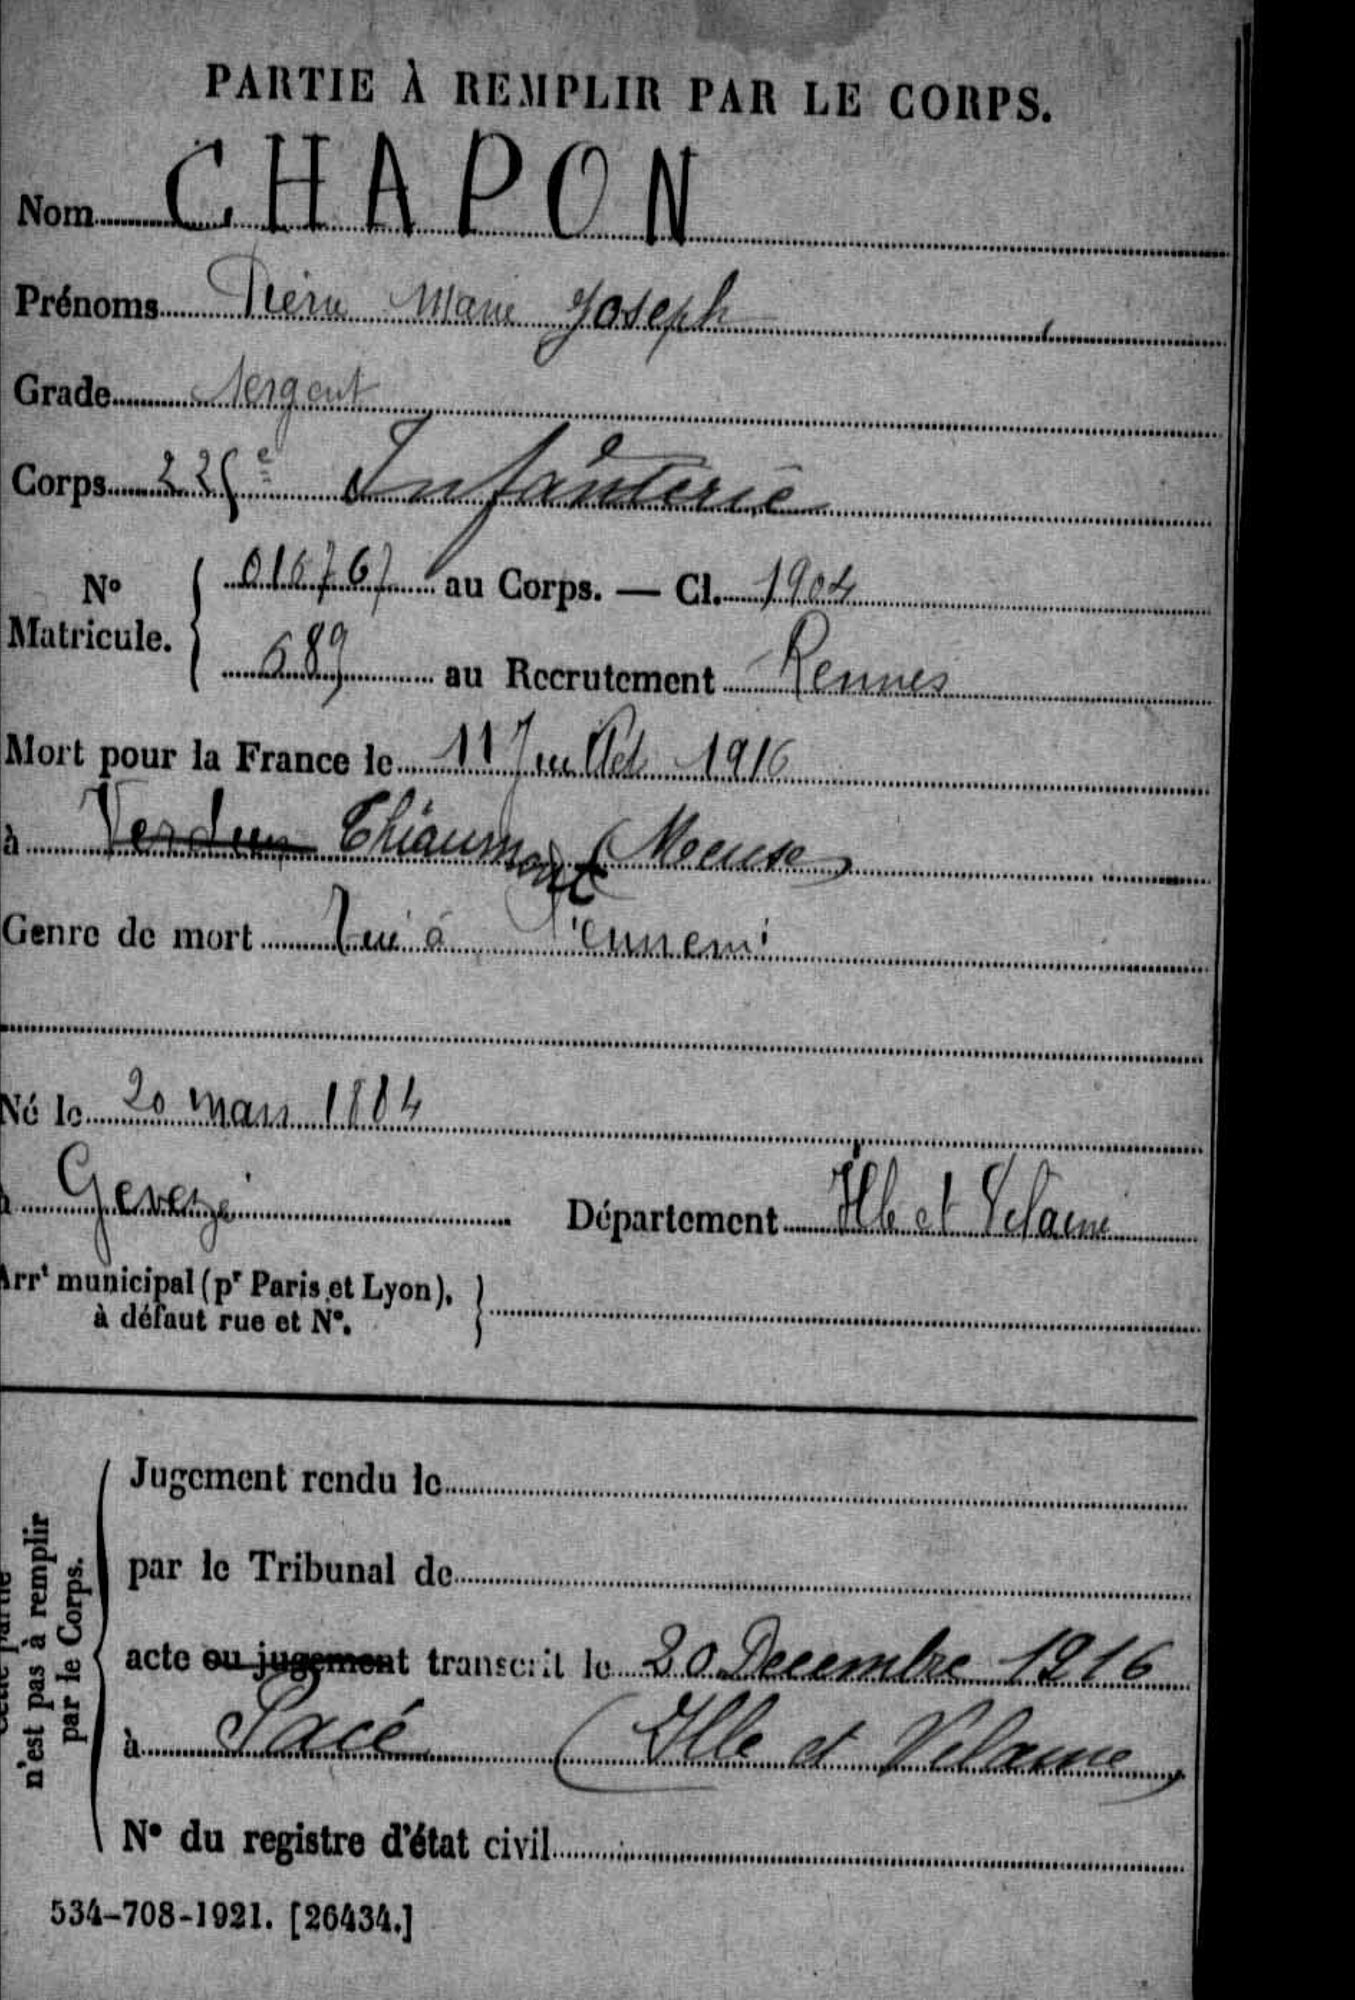 PARTIE À REMPLIR PAR LE CORPS.
Nom CHAPON
Prénoms Pierre Marie Joseph
Grade Sergent
Corps 225e Infanterie
No Matricule. { 016767 au Corps. — Cl. 1904
689 au Recrutement Rennes
Mort pour la France le 11 Juillet 1916
à Verdun Thiaumont (Meuse)
Genre de mort Tué à l'ennemi
Né le 20 mars 1884
à Gevezé Département Ille et Vilaine
Arrt municipal (pr Paris et Lyon), à défaut rue et No. }
Cette partie n'est pas à remplir par le Corps.
Jugement rendu le
par le Tribunal de
acte ou jugement transcrit le 20 Decembre 1916
à Pacé (Ille et Vilaine)
No du registre d'état civil
534-708-1921. [26434.]